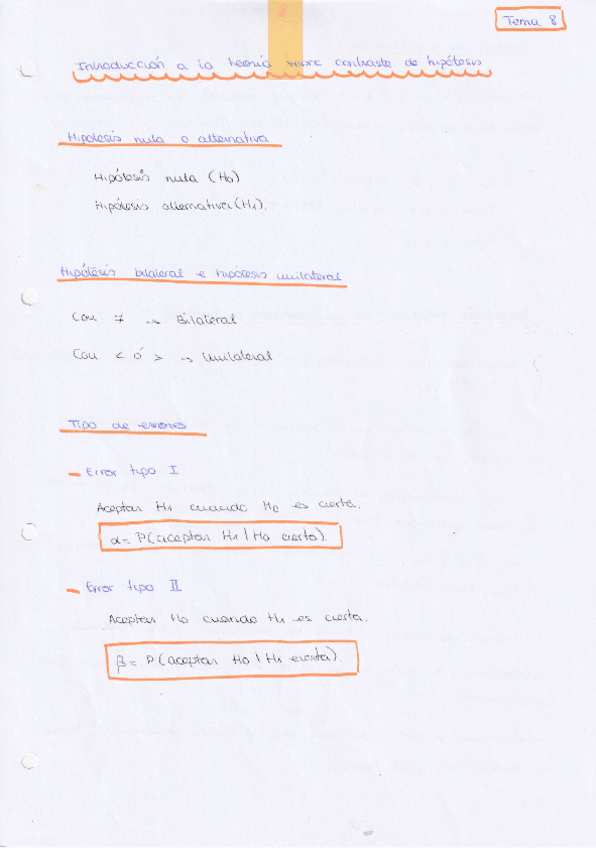 Tema 8
Introducción a la teoría sobre contraste de hipótesis
Hipótesis nula e alternativa
Hipótesis nula (H0)
Hipótesis alternativa (H1).
Hipótesis bilateral e hipótesis unilateral
Con ≠ → Bilateral
Con < ó > → Unilateral
Tipo de errores
- Error tipo I
Aceptar H1 cuando H0 es cierta.
α = P(aceptar H1 | H0 cierta).
- Error tipo II
Aceptar H0 cuando H1 es cierta.
β = P(aceptar H0 | H1 cierta).